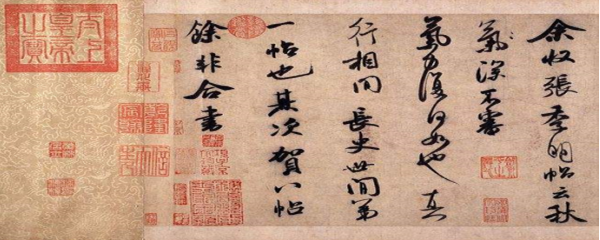 余収張季明帖云秋
氣深不審
氣力復何如也真
行相間長史世間第
一帖也其次賀八帖
餘非合書
太上皇帝之寶